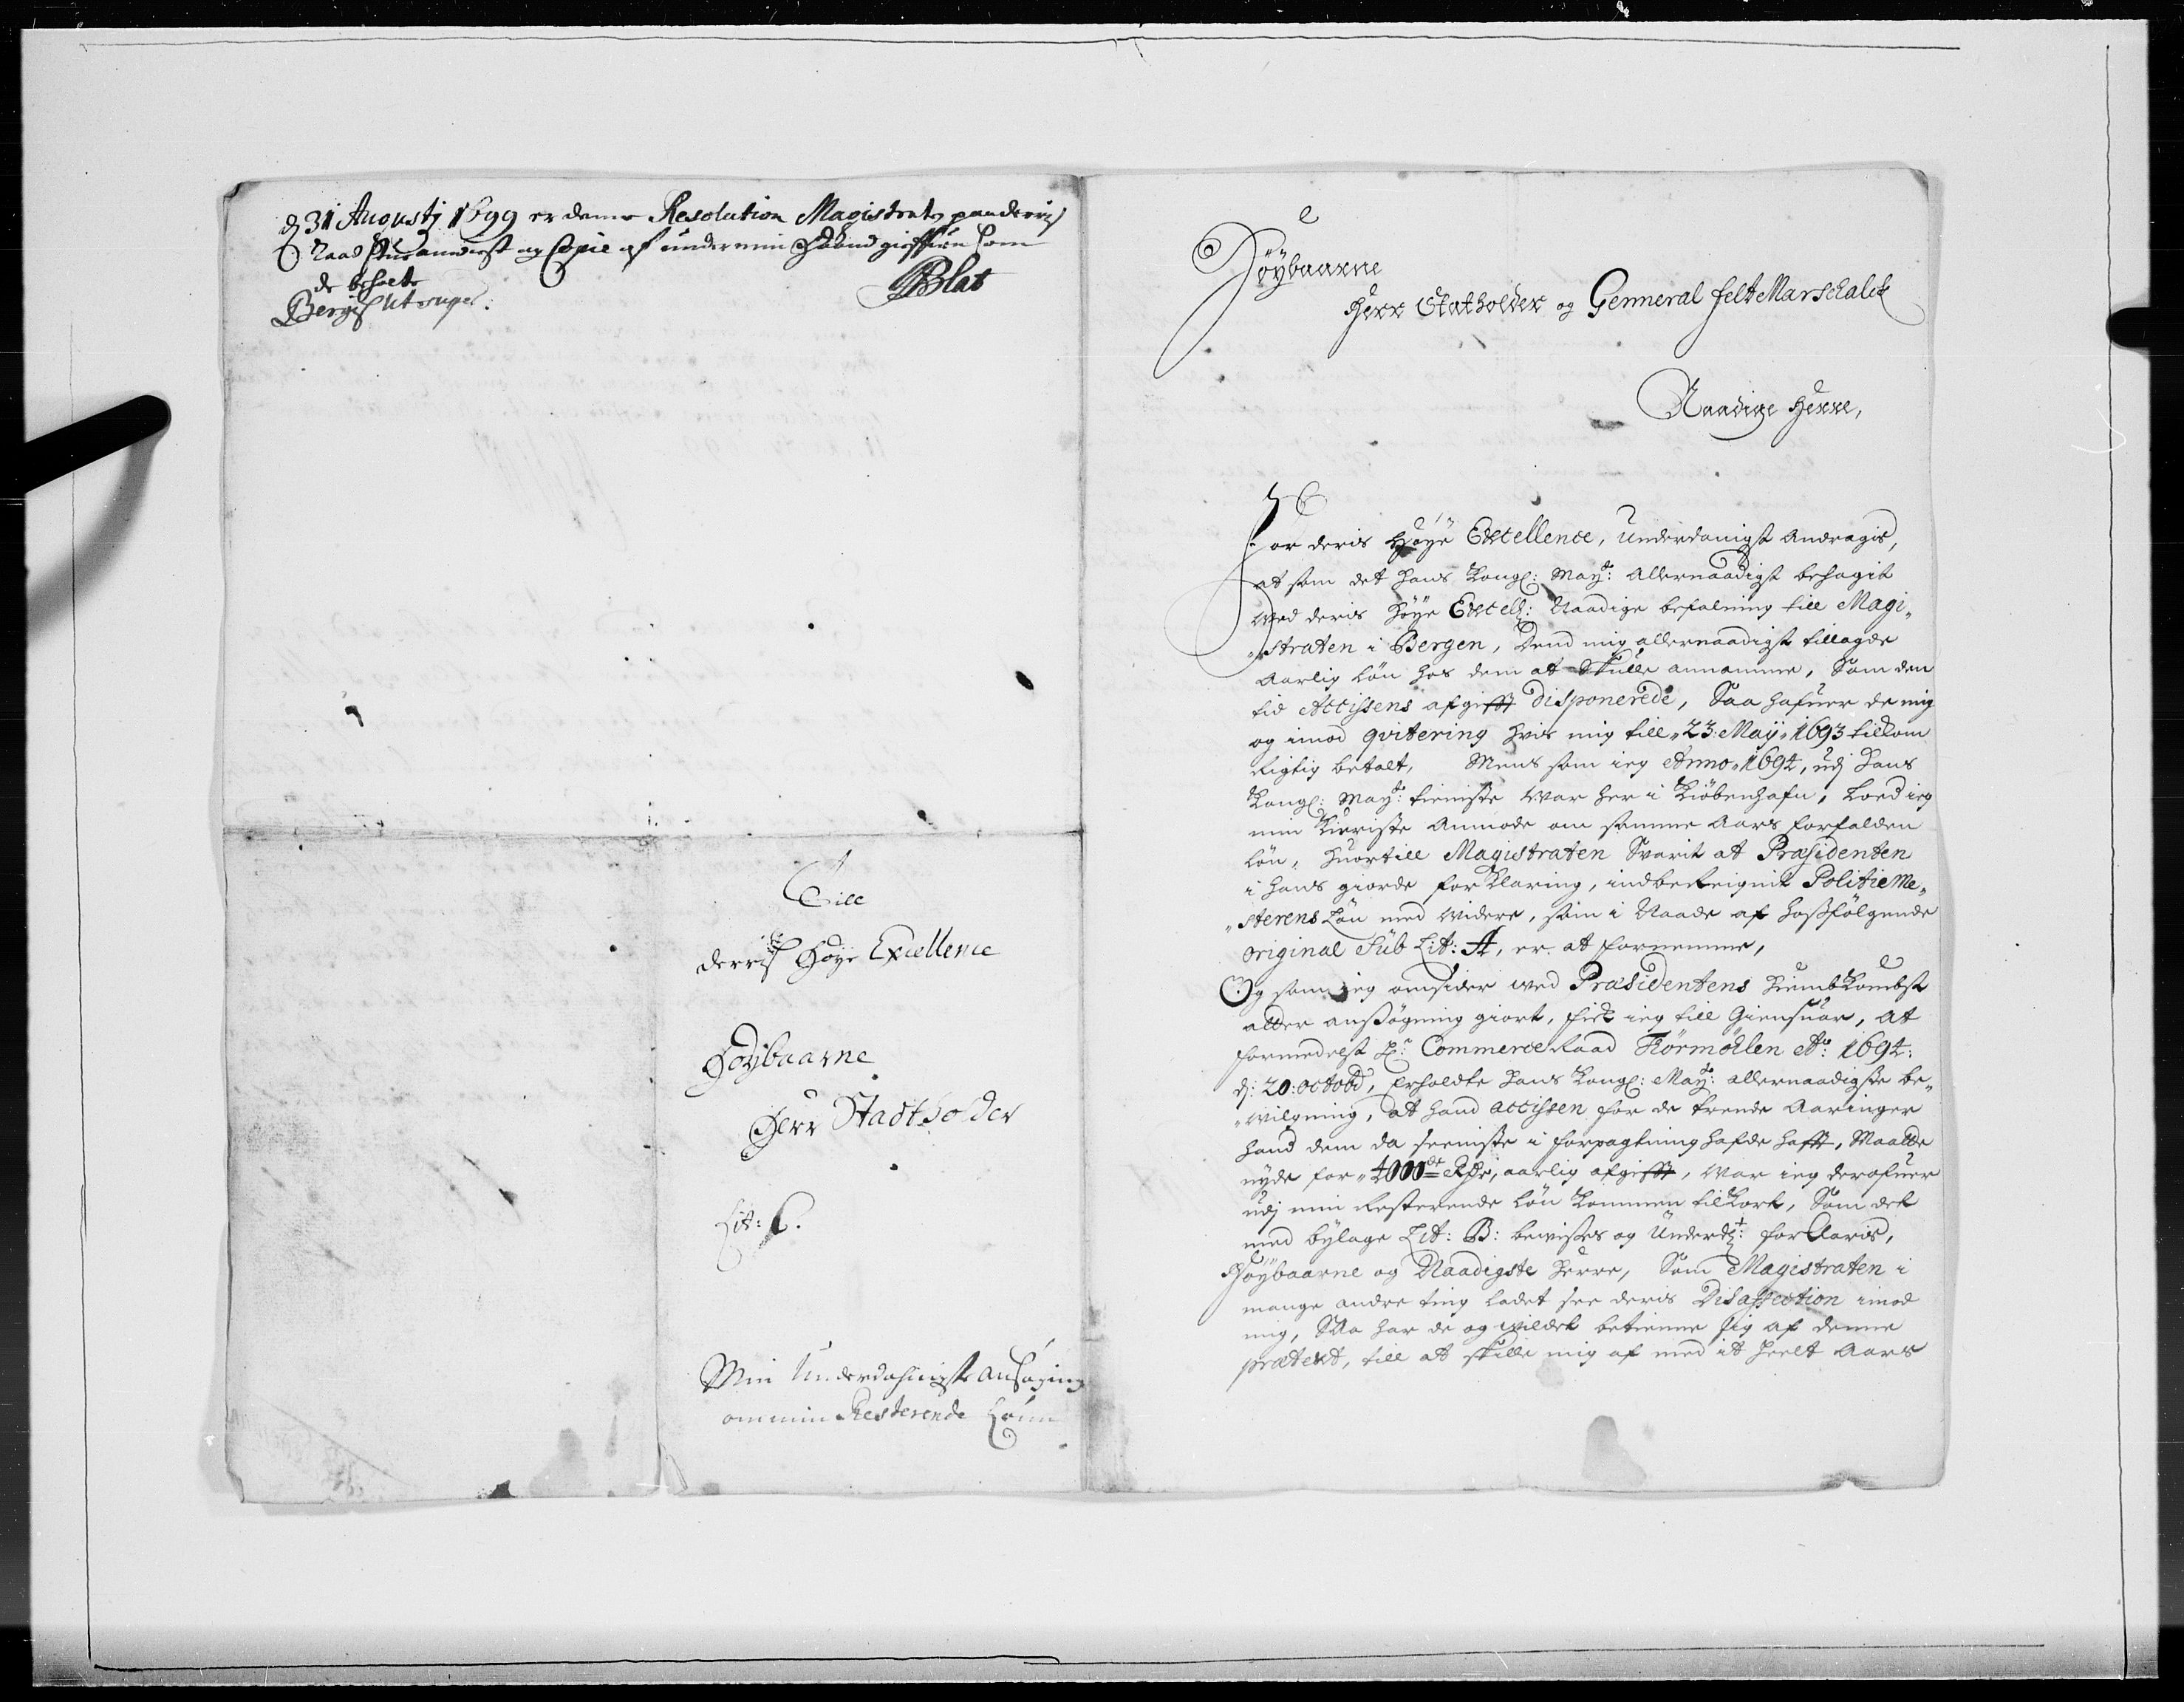 d 31 Augustj 1699 er denne Resolution Magistrats paa derris
Raad Stue anvist og Copie af under min Haand gifven som
de beholte
Bergis ut supra:
Blat
Till
derris Höye Excellence
Höybaarne
Herr Stadtholder
Lit: C.
Min Underdahnigste ansøging
om min Resterende Lönn
Höybaarne
Herr Statholder og Genneral felt Marschalck
Naadige Herre,
For deris Høye Excellence, underdanigst Andragis,
at som det Hans Kongl: May:t Allernaadigst behagit
Ved deris Høye Excell: Naadige befalning till Magi„
„straten i Bergen, Dend mig allernaadigst tillagde
Aarlig Løn hos dem at Skulle annamme, Som den
tid Accissens afgifft disponerede, Saa hafuer de mig
og imod qvitering hvis mig till „23: Maij „1693 tilkom
Rigtig betalt, Mens som ieg Anno „1694, udj Hans
Kongl: May:t tieniste Var her i Kiöbenhafn, Loed ieg
min Kiereste Anmode om samme Aars forfalden
Løn, Huortill Magistraten Svarit at Præsidenten
i Hans giorde forklaring, indbereignit PolitieMe„
„sterens Løn med widere, som i Naade af hosfølgende
original Sub Lit: A, er at fornemme,
Og som ieg omsider wed Præsidentens Hiembkombst
atter ansøgning giort, fick ieg till Giensuar, At
formedelst Hr. Commerce Raad Törmöllen Ao: 1694:
d: 20: octobr, Erholdte Hans Kongl: May:t allernaadigste be„
„wilgning, at hand Accissen for de trende Aaringer
hand dem da seeniste i forpagtning hafde hafft, Maatte
nyde for „4000de Rdr, aarlig afgifft, Var ieg derofuer
udj min Resterende Løn kommen tilkort, Som det
med bylage Lit: B: bevises og Underdt: forklaris,
Höybaarne og Naadigste Herre, Som Magistraten i
mange andre ting ladet see deris Disaffection imod
mig, Saa har de og wildet betienne sig af denne
prætext, till at skille mig af med it heelt Aars